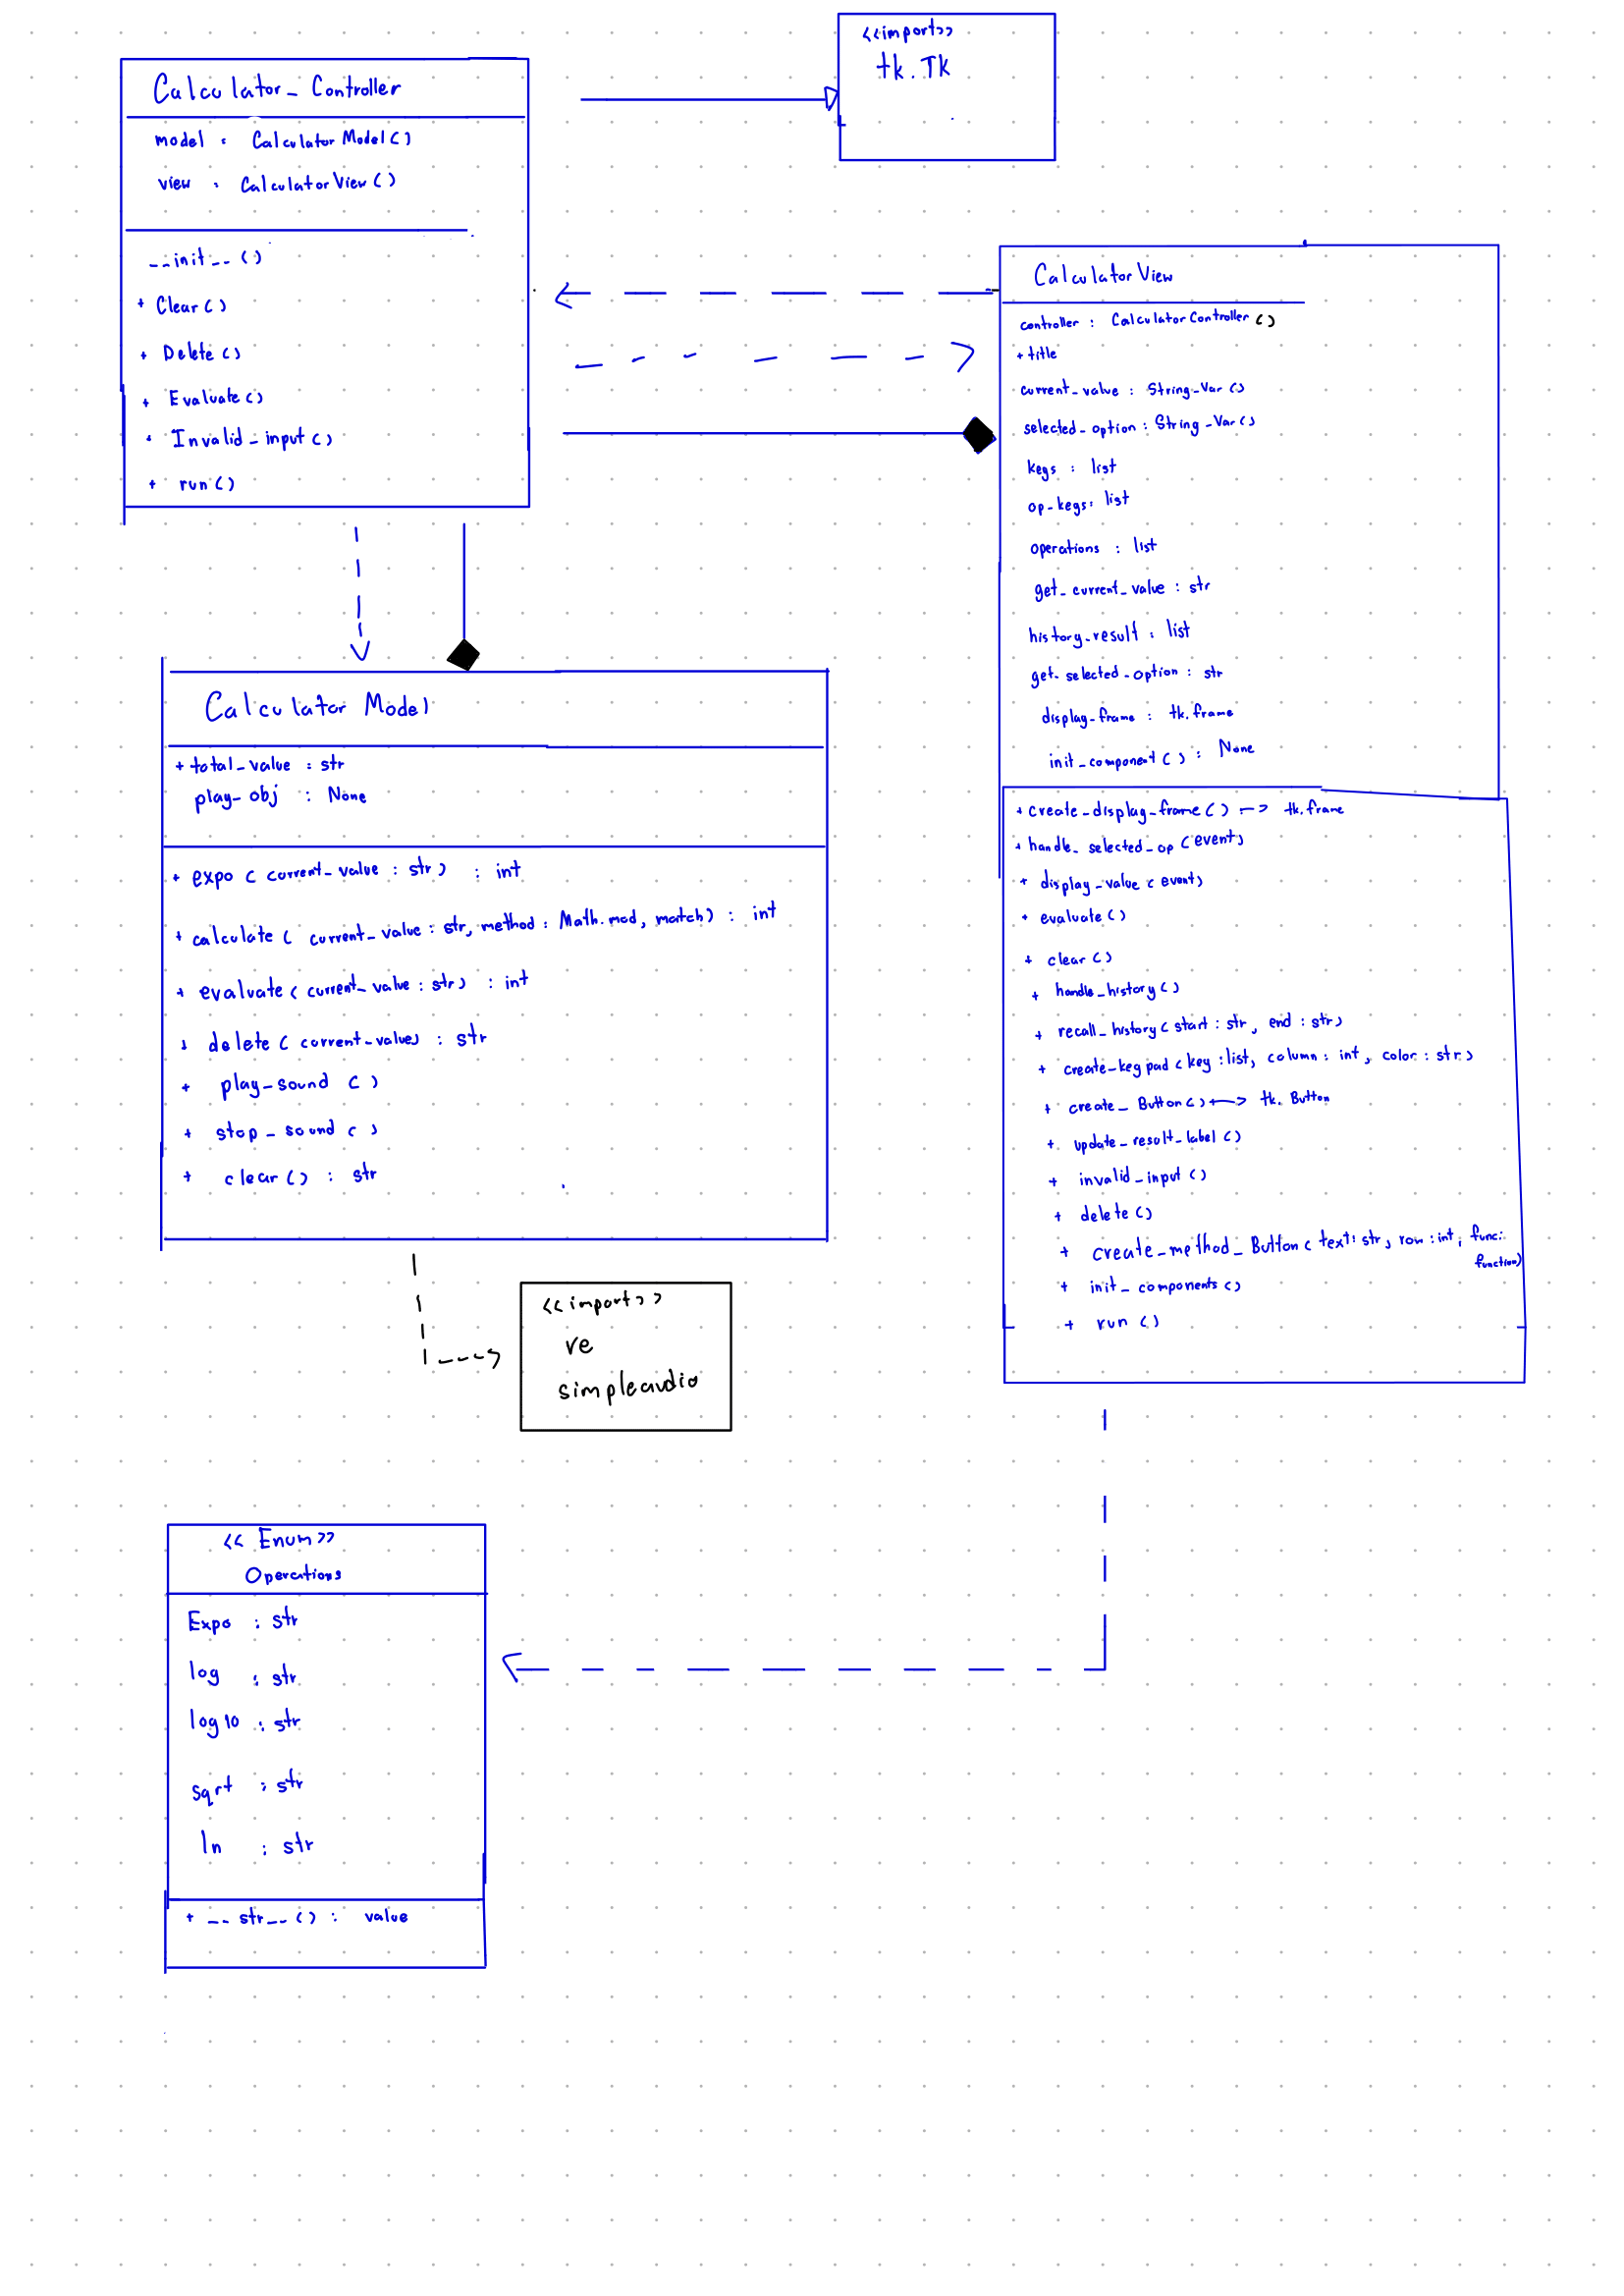 Calculator_Controller
model : CalculatorModel()
view : CalculatorView()
__init__()
+ Clear()
+ Delete()
+ Evaluate()
+ Invalid_input()
+ run()
<<import>>
tk.Tk
CalculatorView
controller : CalculatorController()
+ title
current_value : String_Var()
selected_option : String_Var()
keys : list
op_keys : list
operations : list
get_current_value : str
history_result : list
get_selected_option : str
display_frame : tk.frame
init_component() : None
+ create_display_frame() --> tk.frame
+ handle_selected_op (event)
+ display_value (event)
+ evaluate()
+ clear()
+ handle_history()
+ recall_history(start : str, end : str)
+ create_keypad (key : list, column : int, color : str)
+ create_Button() --> tk.Button
+ update_result_label()
+ invalid_input()
+ delete()
+ create_method_Button (text: str, row : int, func:
function)
+ init_components()
+ run()
Calculator Model
+ total_value : str
play_obj : None
+ expo ( current_value : str) : int
+ calculate ( current_value : str, method : Math.mod, match) : int
+ evaluate ( current_value : str) : int
+ delete ( current_value) : str
+ play_sound ()
+ stop_sound ()
+ clear() : str
<<import>>
re
simpleaudio
<<Enum>>
Operations
Expo : str
log : str
log10 : str
sqrt : str
ln : str
+ __str__() : value